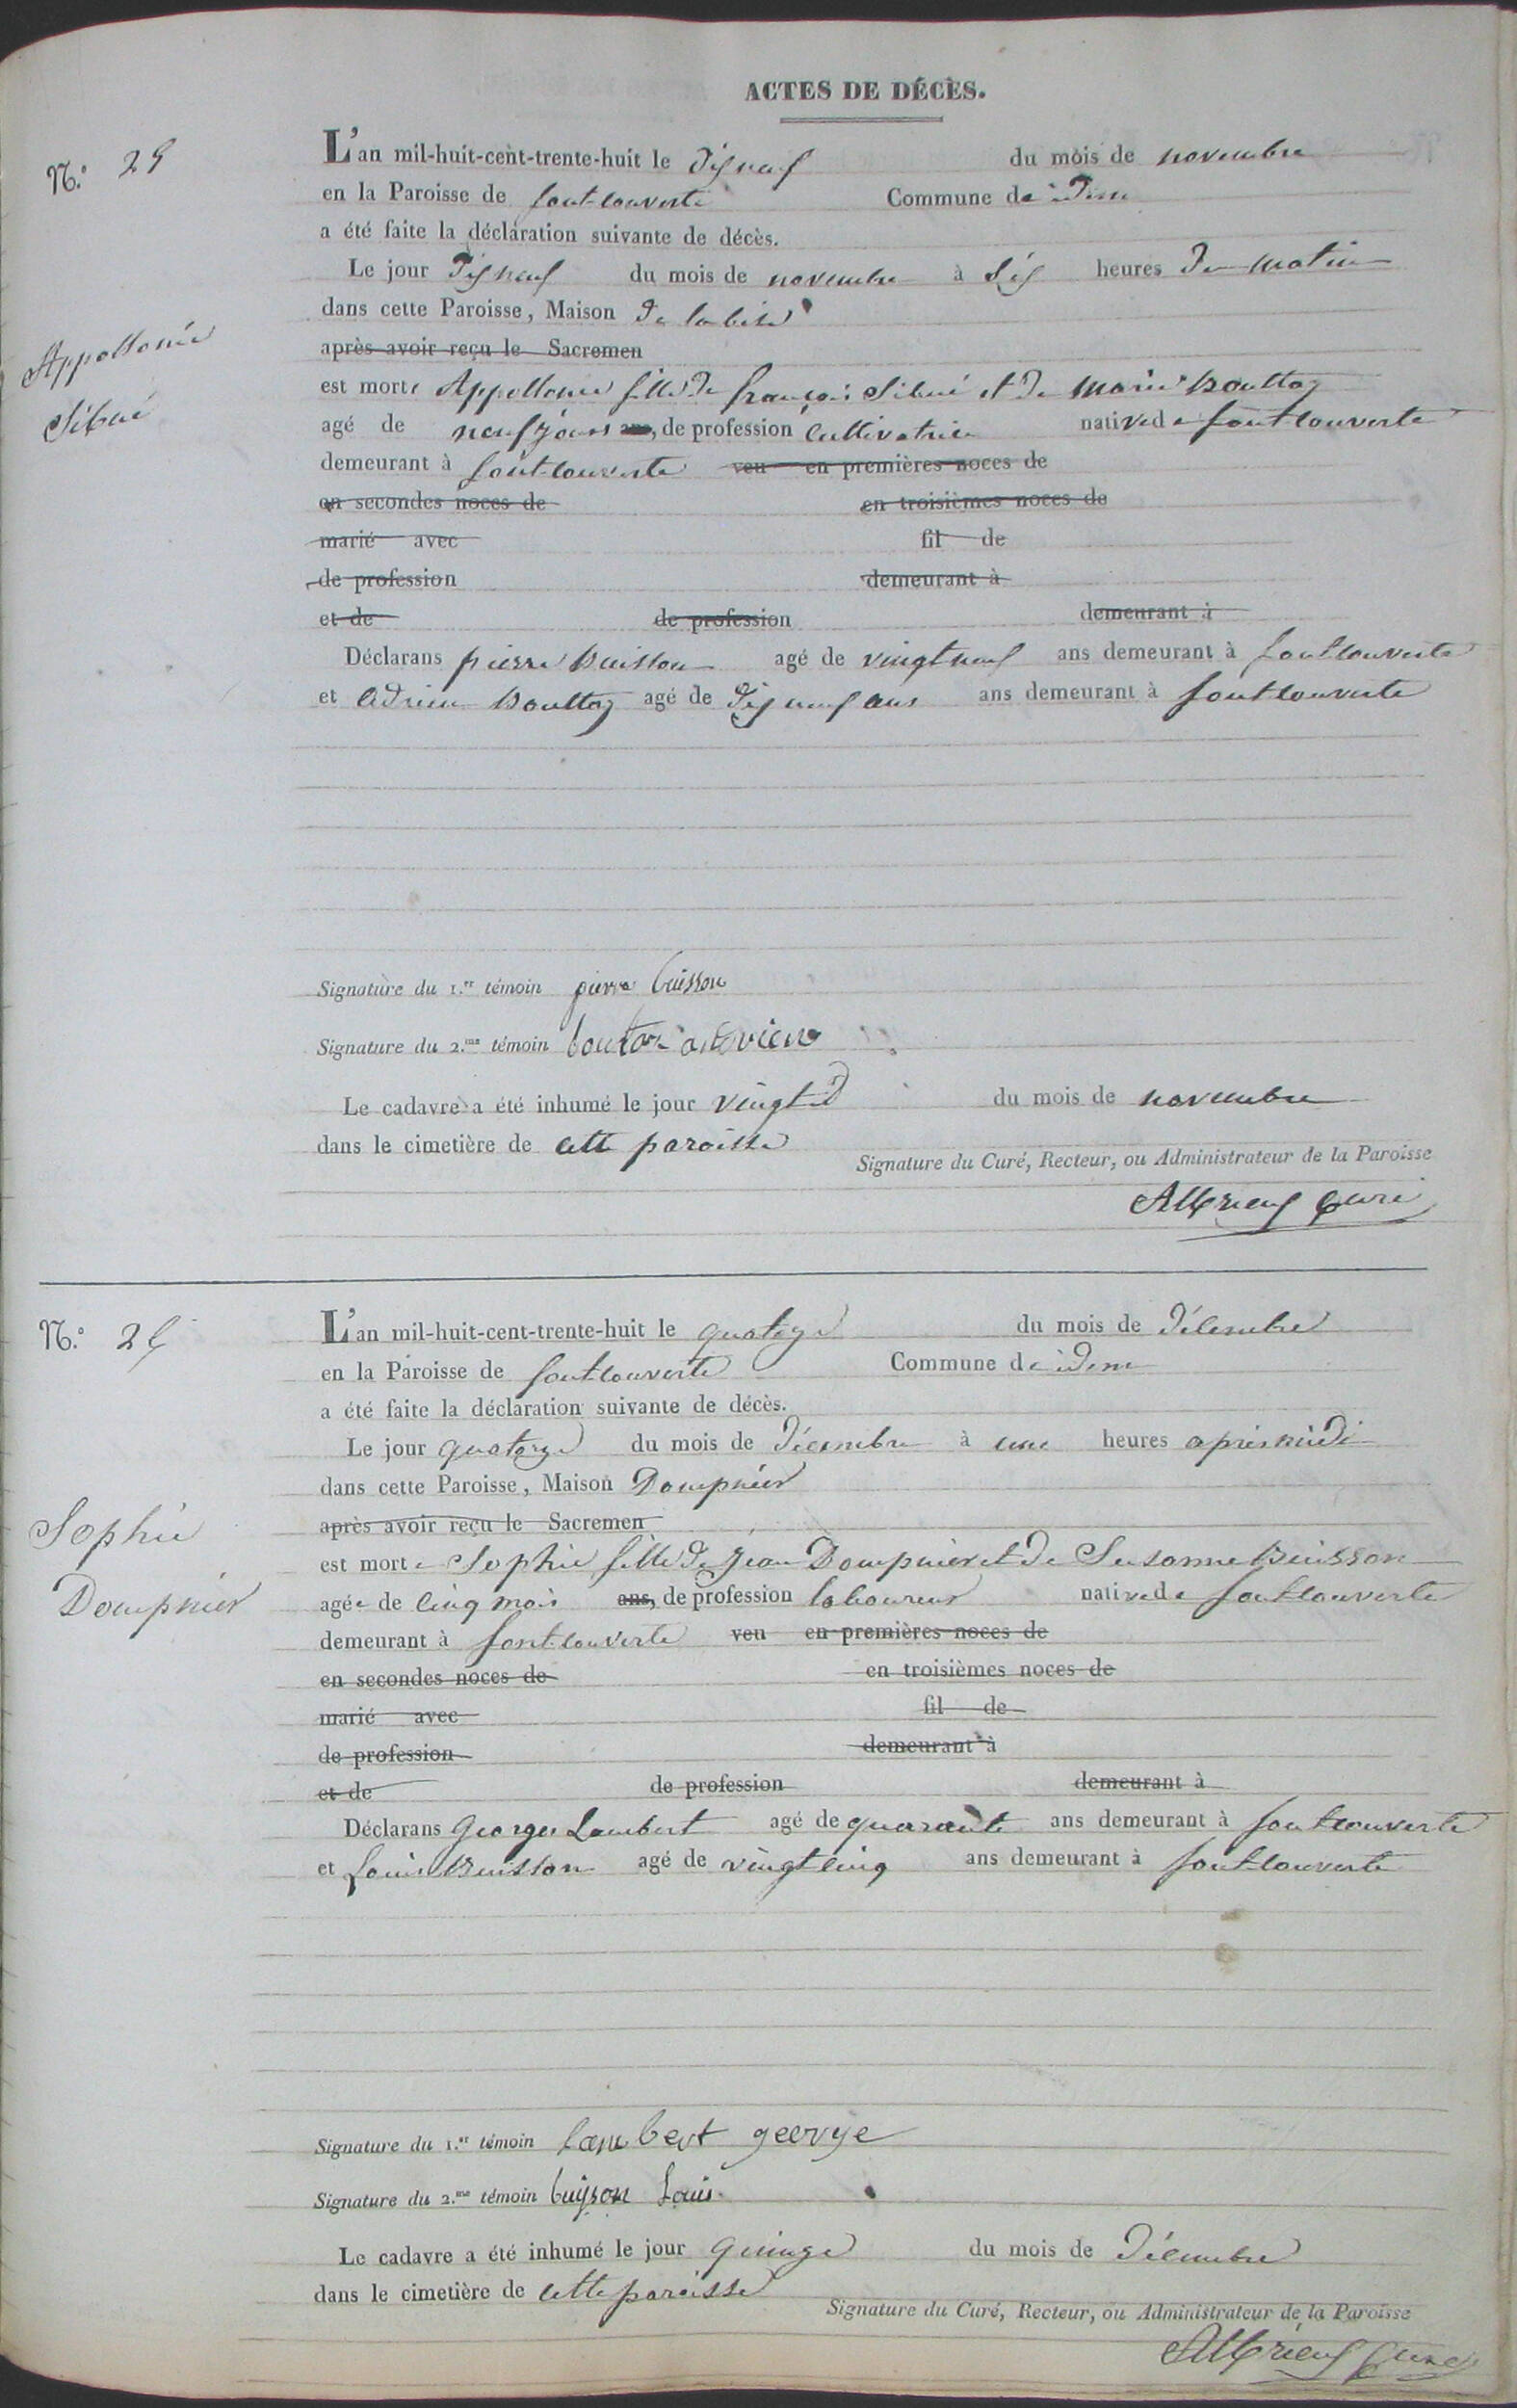 ACTES DE DÉCÈS.
N.o
L'an mil-huit-cent-trente-huit le dixneuf du mois de novembre
en la Paroisse de fontcouverte Commune de idem
a été faite la déclaration suivante de décès.
Le jour dixneuf du mois de novembre à six heures du matin
dans cette Paroisse, Maison de
Appollonie
Sibué
après avoir reçu le Sacremen
est morte Appollonie fille de françois Sibué et de Marie Bouttaz
agé de neuf jours ans, de profession cultivatrice native de fontcouverte
demeurant à fontcouverte veu en premières noces de
en secondes noces de en troisièmes noces de
marié avec fil de
de profession demeurant à
et de de profession demeurant à
Déclarans pierre Buisson agé de vingt neuf ans demeurant à fontcouverte
et Adrien Bouttaz agé de dix neuf ans ans demeurant à fontcouverte
Signature du 1.er témoin pierre buisson
Signature du 2.me témoin
Le cadavre a été inhumé le jour vingt du mois de novembre
dans le cimetière de cette paroisse
Signature du Curé, Recteur, ou Administrateur de la Paroisse
curé
N.o
L'an mil-huit-cent-trente-huit le quatorze du mois de décembre
en la Paroisse de fontcouverte Commune de idem
a été faite la déclaration suivante de décès.
Le jour quatorze du mois de décembre à une heures après midi
dans cette Paroisse, Maison Dompnier
Sophie
Dompnier
après avoir reçu le Sacremen
est morte Sophie fille de jean Dompnier et de Susanne Buisson
agée de cinq mois ans, de profession laboureur native de fontcouverte
demeurant à fontcouverte veu en premières noces de
en secondes noces de en troisièmes noces de
marié avec fil de
de profession demeurant à
et de de profession demeurant à
Déclarans George Lambert agé de quarante ans demeurant à fontcouverte
et Louis Buisson agé de vingt cinq ans demeurant à fontcouverte
Signature du 1.er témoin lambert george
Signature du 2.me témoin buisson Louis
Le cadavre a été inhumé le jour quinze du mois de décembre
dans le cimetière de cette paroisse
Signature du Curé, Recteur, ou Administrateur de la Paroisse
curé